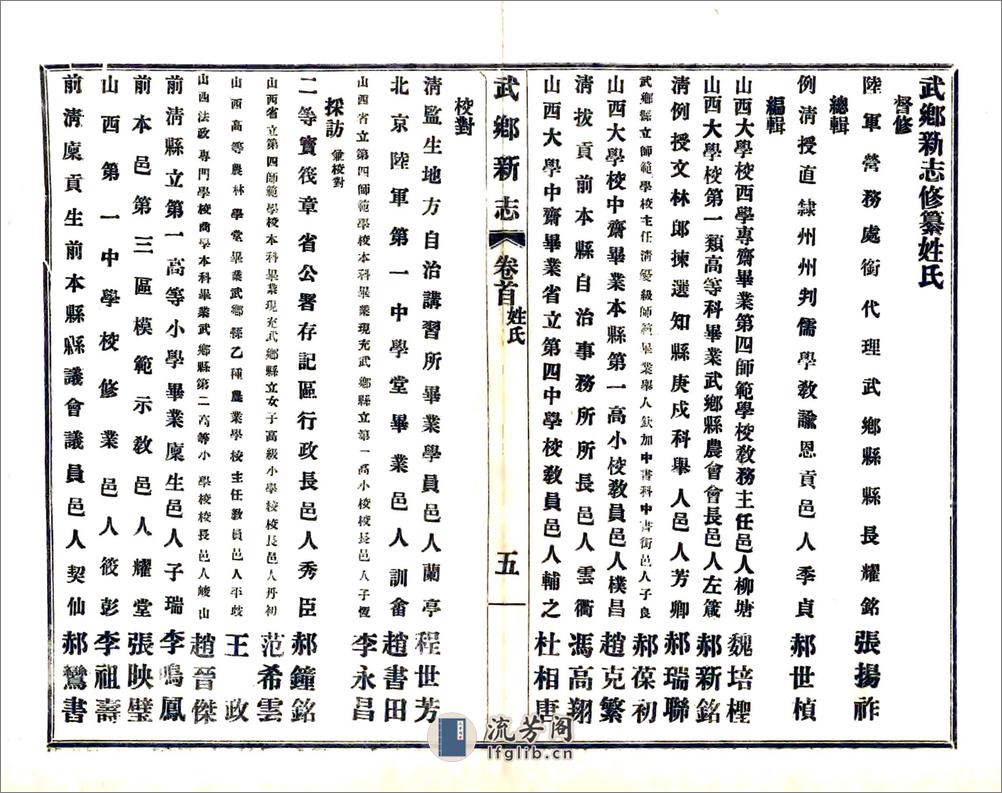 武鄉新志修纂姓氏
督修
陸軍營務處銜代理武鄉縣縣長耀銘張揚祚
總輯
例清授直隸州州判儒學敎諭恩貢邑人季貞郝世楨
編輯
山西大學校西學專齋畢業第四師範學校敎務主任邑人柳塘魏培檉
山西大學校第一類高等科畢業武鄉縣農會會長邑人左箴郝新銘
清例授文林郎揀選知縣庚戍科舉人邑人芳卿郝瑞聯
武鄉縣立師範學校主任清優級師範畢業舉人欽加中書科中書銜邑人子良郝葆初
山西大學校中齋畢業本縣第一高小校敎員邑人樸昌趙克繁
清拔貢前本縣自治事務所所長邑人雲衢馮高翔
山西大學中齋畢業省立第四中學校敎員邑人輔之杜相唐
武鄉新志
卷首
姓氏
五
校對
清監生地方自治講習所畢業學員邑人蘭亭程世芳
北京陸軍第一中學堂畢業邑人訓畬趙書田
山西省立第四師範學校本科畢業現充武鄉縣立第一高小校校長邑人子恆李永昌
採訪 彙校對
二等寳筏章省公署存記區行政長邑人秀臣郝鐘銘
山西省立第四師範學校本科畢業現充武鄉縣立女子高級小學校校長邑人丹初范希雲
山西高等農林學堂畢業武鄉縣乙種農業學校主任敎員邑人平歧王政
山西法政專門學校商學本科畢業武鄉縣第二高等小學校校長邑人峻山趙晉傑
前清縣立第一高等小學畢業廩生邑人子瑞李鳴鳳
前本邑第三區模範示敎邑人耀堂張映璧
山西第一中學校修業邑人筱彭李祖壽
前清廩貢生前本縣縣議會議員邑人契仙郝鸞書
流芳阁
lfglib.cn